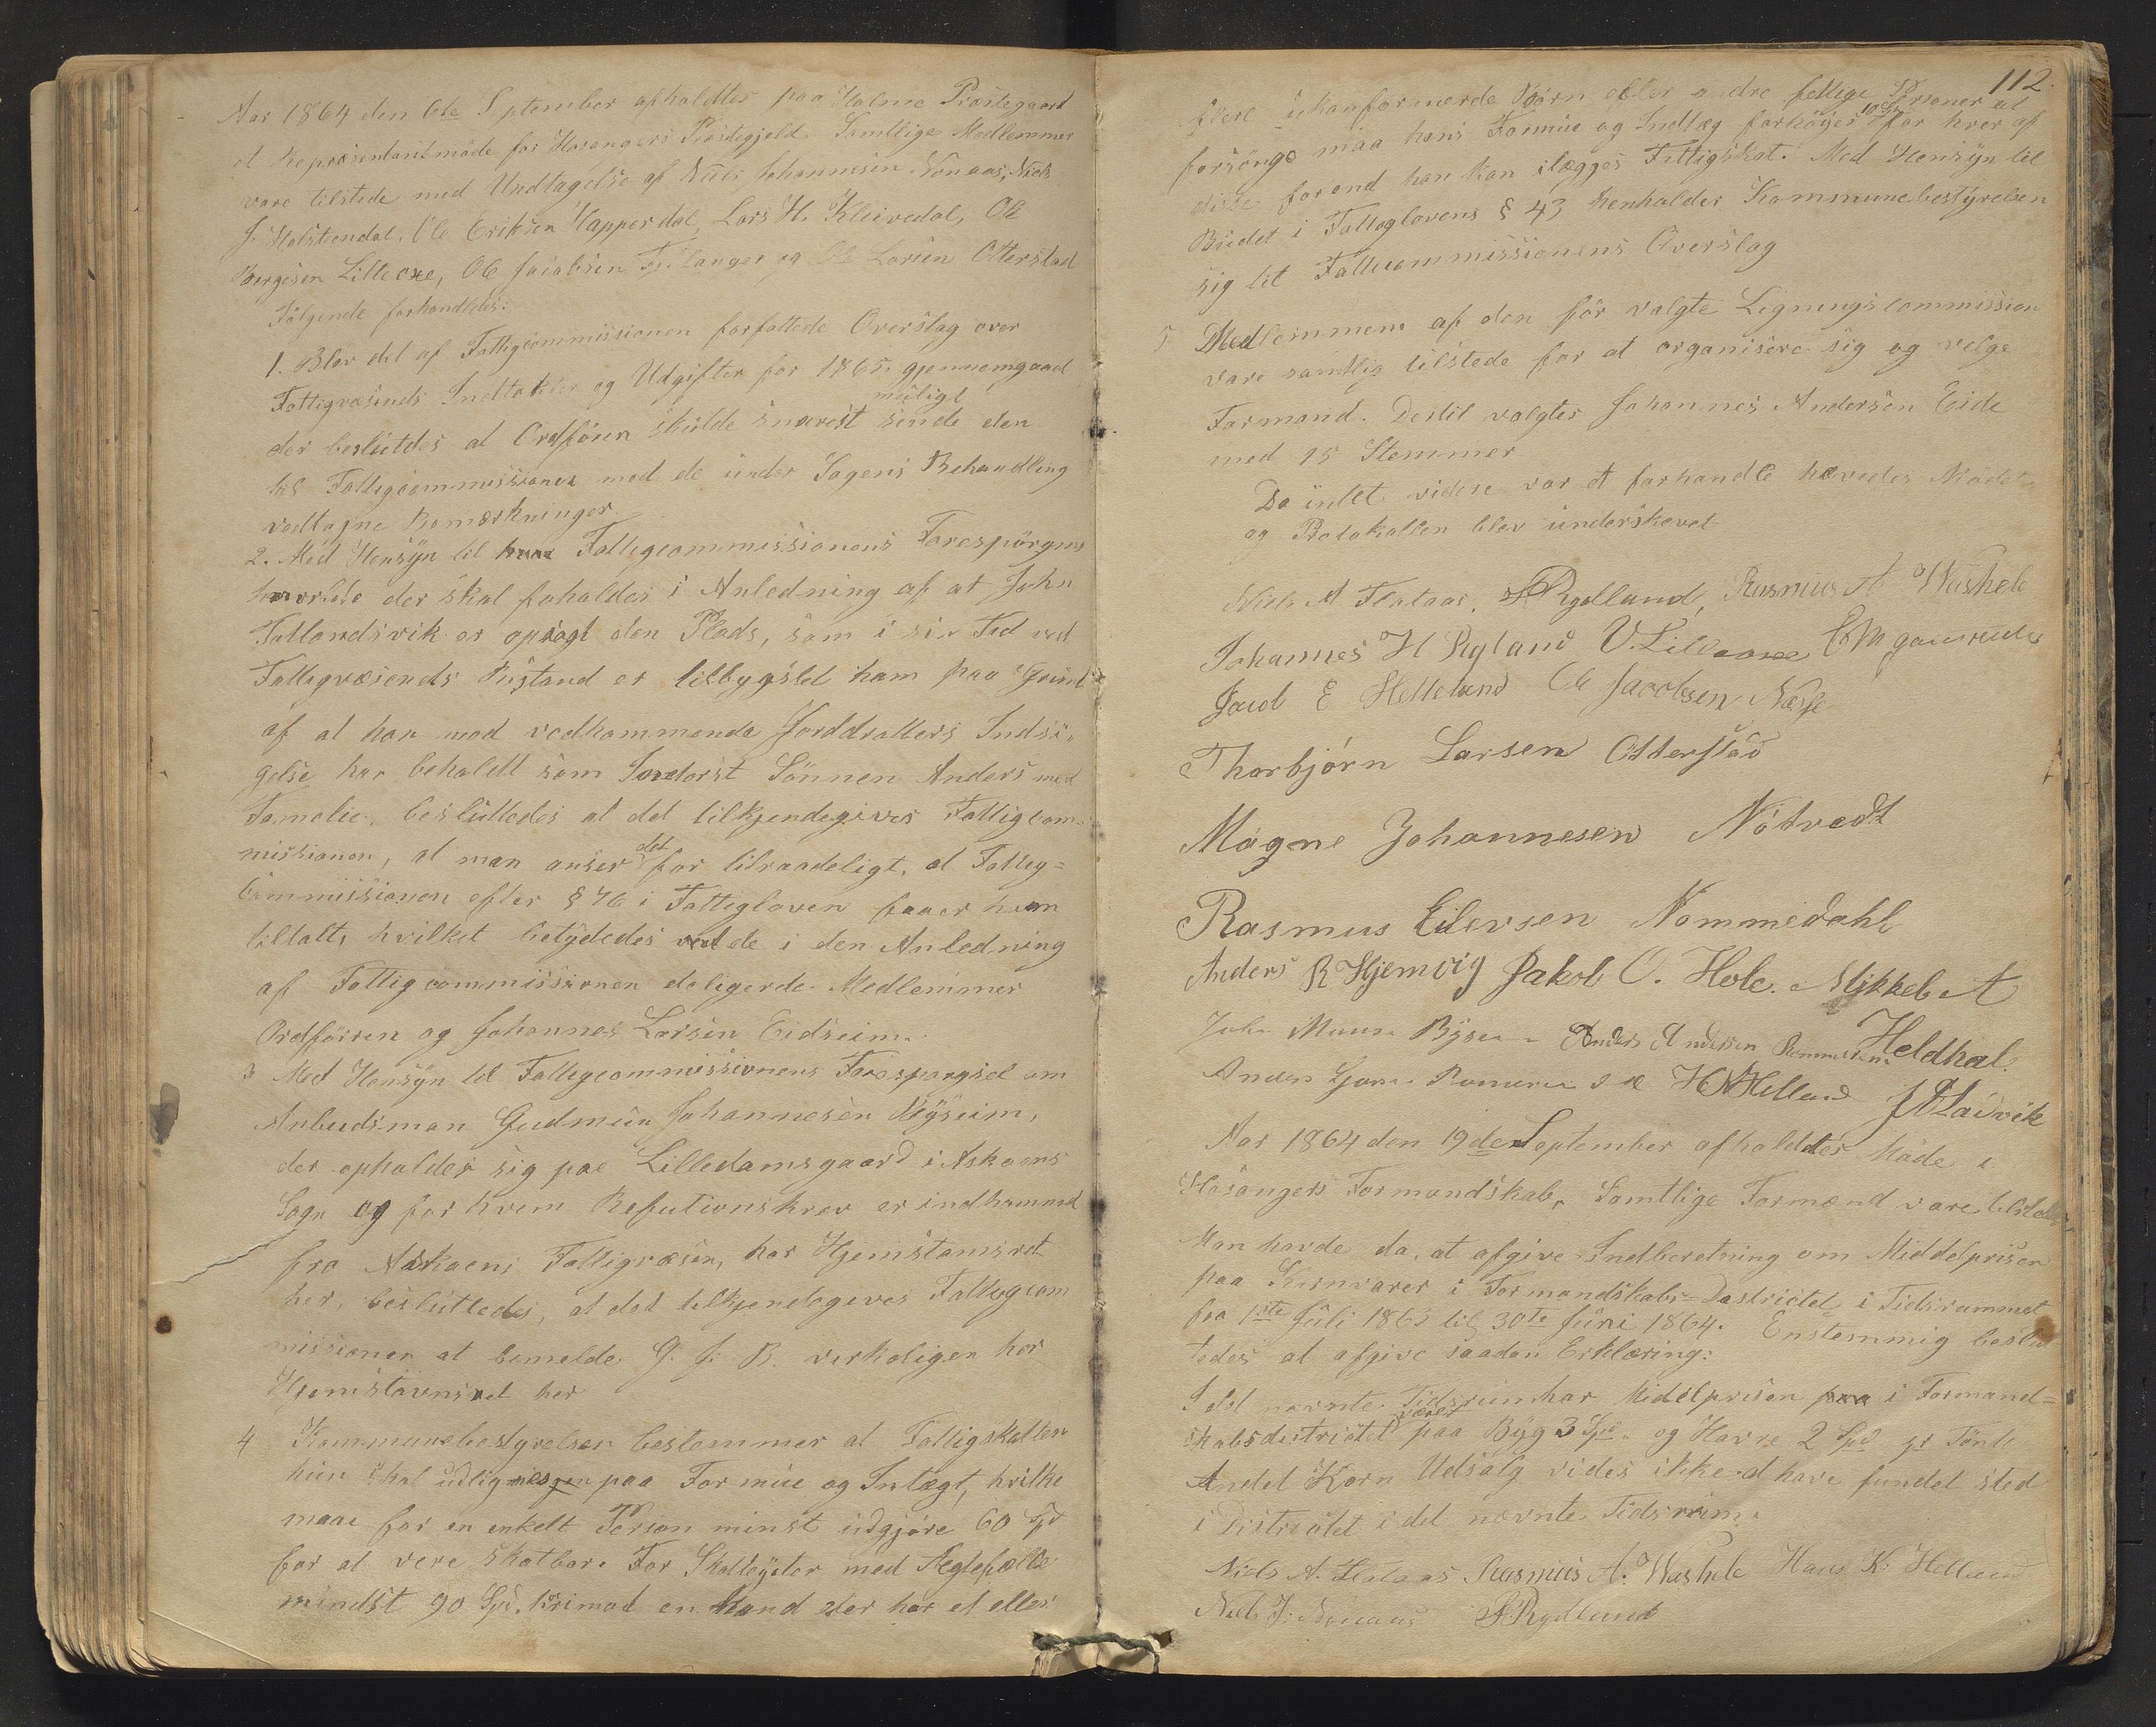 Aar 1864 den 6te September afholdtes paa Holme Præstegaard
et Repræsentantmøde for Hosangers Præstegjeld. Samtlige Medlemmer
vare tilstede med Undtagelse af Nils Johannesen Nonaas, Niels
J. Holstendal, Ole Eriksen Tapperdal, Lars H. Kleivedal, Ole
Børgesen Lilleoxe, Ole Jacobsen Fyllanger og Ole Larsen Otterstad
Følgende forhandledes:
1. Blev det af Fattigcommissionen forfattede Overslag over
Fattigvæsends Indtækter og Udgifter for 1865 gjennemgaaed
der beslutdes at Ordføren skulde snarest muligt sende den
til Fattigcommissionen med de under Sagens Behandling
vedtagne Bemærkninger.
2. Med Hensyn til Fattigcommissionens Forespørgsel
hvorlede der skal forholdes i Anledning af at John
Tallandsvik er opsagt den Plads, som i sin Tid ved
Fattigvæsends Bistand er tilbygslet ham paa Grund
af at han mod vedkommende Jorddrotters Indsi-
gelse har beholdt som Inderst Sønnen Anders med
Familie, besluttedes at det tilkjendegives Fattigcom-
missionen, at man anser det for tilraadeligt, at Fattig=
Commissionen efter § 46 i Fattigloven faaer ham
tiltalt, hvilket betydedes de i den Anledning
af Fattigcommissionen deligerde Medlemmer
Ordføreren og Johannes Larsen Eidseim.
3 Med Hensyn til Fattigcommissionens Forespørgsel om
Anbudsman Gudmun Johannesen Røyseim,
der opholder sig paa Lilledamsgaard i Askøens
Sogn og for hvem Refutionskrav er indkommed
fra Askøens Fattigvæsen, har Hjemstamsret
her, besluttedes, at det tilkjendegives Fattigcom
missionen at bemelde G. J. R. verkeligen har
Hjemstavnsret her
4 Kommunebestyrelsen bestemmer at Fattigskatten
kun skal udlignes paa Formue og Intægt, hvilke
maae for en enkelt Person minst udgjøre 60 Spd
for at være skatbar. For Skatteyder med Ægtefælle
mindst 90 Spd. hvorimod en Mand der har et eller
112.
flere ukonfermerde Børn eller andre fattige Personer at
forsørge maa hans Formue og Indtæg forhøies 10 Spd for hver af
disse forend han kan ilægges Fattigskat. Med Hensyn til
Budet i Fattiglovens § 43 henholder Kommunebestyrelsen
sig til Fattiommissionens Overslag
5 Medlemmem af den før valgte Ligningscommission
vare samtlig tilstede for at organisere sig og velge
Formand. Dertil valgtes Johannes Andersen Eide
med 15 Stemmer
Da intet videre var at forhandle hævedes Mødet
og Protokollen blev underskrevet
Niels A Flataas, S Rydland, Rasmus A Washele
Johannes H Ryland
Jacob E Helleland Ole Jacobsen Næsse
Thorbjørn Larsen Otterstad
Magne Johannesen Nøtvedt
Rasmus Eilersen Nommedahl
Anders R Hjemvig Jakob O. Hole. Mikkel A
Heldhal.
John Anders Andersen
H N Helland J A Ladvik
Aar 1864 den 19de September afholdtes Møde i
Hosangers Formandskab, Samtlige Formænd vare tilstede
Man havde da at afgive Indberetning om Middelprisen
paa Kornvarer i Formandskabs-Destrictet i Tidsrummet
fra 1ste Juli 1863 til 30te Juni 1864. Enstemmig beslut
tedes at afgive saadan Erklæring:
I det nævnte Tidsrum har Middelprisen i Formand=
skabsdistrictet været paa Byg 3 Spd. og Havre 2 Spd pr Tønde
Andet Korn Udsalg vides ikke at have fundet sted
i Districtet i det nævnte Tidsrum.
Niels A. Flataas Rasmus A. Washele Hans K. Helland
Niels J. Nonaas S Rydland